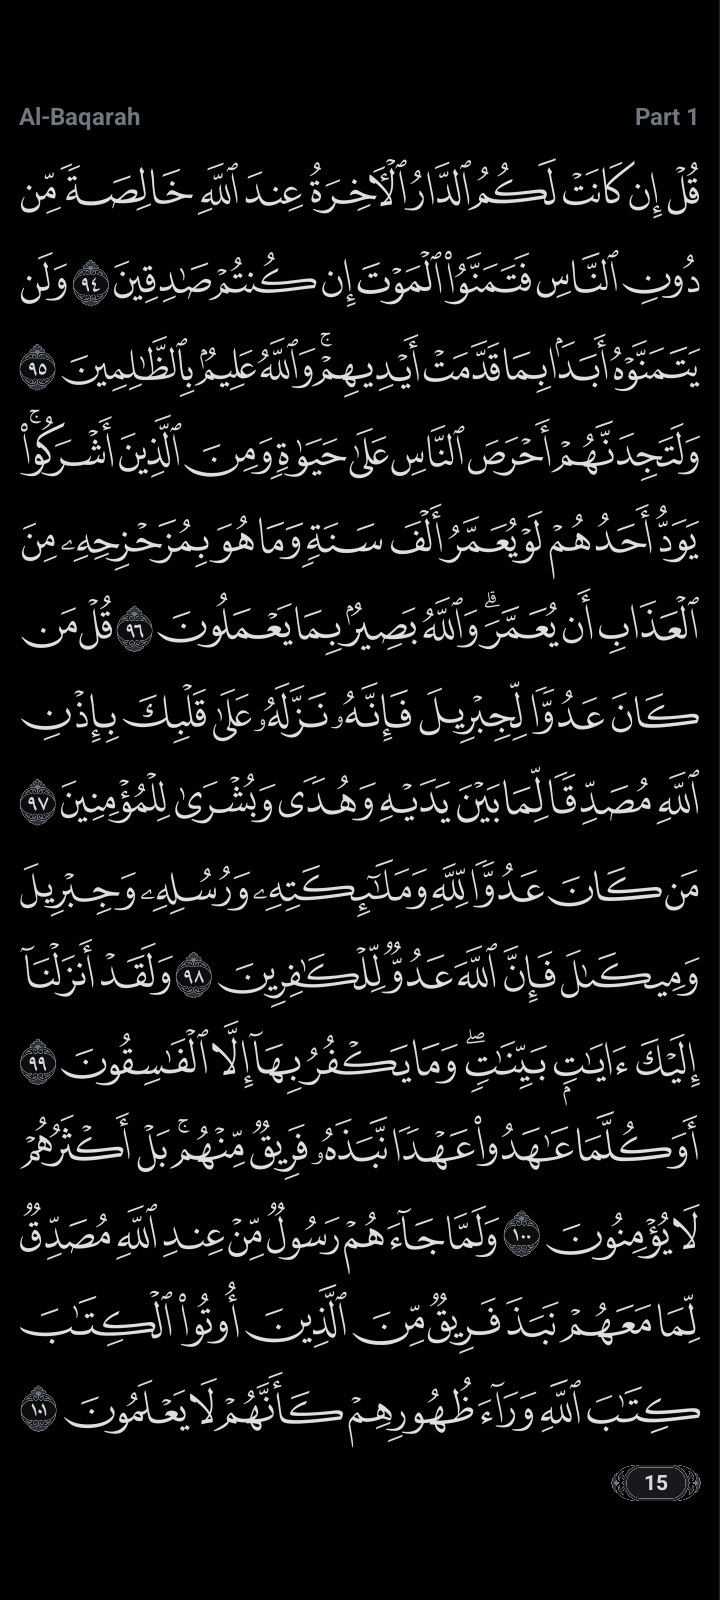 Al-Baqarah Part 1
قُلۡ إِن كَانَتۡ لَكُمُ ٱلدَّارُ ٱلۡأٓخِرَةُ عِندَ ٱللَّهِ خَالِصَةٗ مِّن
دُونِ ٱلنَّاسِ فَتَمَنَّوُاْ ٱلۡمَوۡتَ إِن كُنتُمۡ صَٰدِقِينَ ٩٤ وَلَن
يَتَمَنَّوۡهُ أَبَدَۢا بِمَا قَدَّمَتۡ أَيۡدِيهِمۡۚ وَٱللَّهُ عَلِيمُۢ بِٱلظَّٰلِمِينَ ٩٥
وَلَتَجِدَنَّهُمۡ أَحۡرَصَ ٱلنَّاسِ عَلَىٰ حَيَوٰةٖ وَمِنَ ٱلَّذِينَ أَشۡرَكُواْۚ
يَوَدُّ أَحَدُهُمۡ لَوۡ يُعَمَّرُ أَلۡفَ سَنَةٖ وَمَا هُوَ بِمُزَحۡزِحِهِۦ مِنَ
ٱلۡعَذَابِ أَن يُعَمَّرَۗ وَٱللَّهُ بَصِيرُۢ بِمَا يَعۡمَلُونَ ٩٦ قُلۡ مَن
كَانَ عَدُوّٗا لِّجِبۡرِيلَ فَإِنَّهُۥ نَزَّلَهُۥ عَلَىٰ قَلۡبِكَ بِإِذۡنِ
ٱللَّهِ مُصَدِّقٗا لِّمَا بَيۡنَ يَدَيۡهِ وَهُدٗى وَبُشۡرَىٰ لِلۡمُؤۡمِنِينَ ٩٧
مَن كَانَ عَدُوّٗا لِّلَّهِ وَمَلَٰٓئِكَتِهِۦ وَرُسُلِهِۦ وَجِبۡرِيلَ
وَمِيكَىٰلَ فَإِنَّ ٱللَّهَ عَدُوّٞ لِّلۡكَٰفِرِينَ ٩٨ وَلَقَدۡ أَنزَلۡنَآ
إِلَيۡكَ ءَايَٰتِۭ بَيِّنَٰتٖۖ وَمَا يَكۡفُرُ بِهَآ إِلَّا ٱلۡفَٰسِقُونَ ٩٩
أَوَكُلَّمَا عَٰهَدُواْ عَهۡدٗا نَّبَذَهُۥ فَرِيقٞ مِّنۡهُمۚ بَلۡ أَكۡثَرُهُمۡ
لَا يُؤۡمِنُونَ ١٠٠ وَلَمَّا جَآءَهُمۡ رَسُولٞ مِّنۡ عِندِ ٱللَّهِ مُصَدِّقٞ
لِّمَا مَعَهُمۡ نَبَذَ فَرِيقٞ مِّنَ ٱلَّذِينَ أُوتُواْ ٱلۡكِتَٰبَ
كِتَٰبَ ٱللَّهِ وَرَآءَ ظُهُورِهِمۡ كَأَنَّهُمۡ لَا يَعۡلَمُونَ ١٠١
15